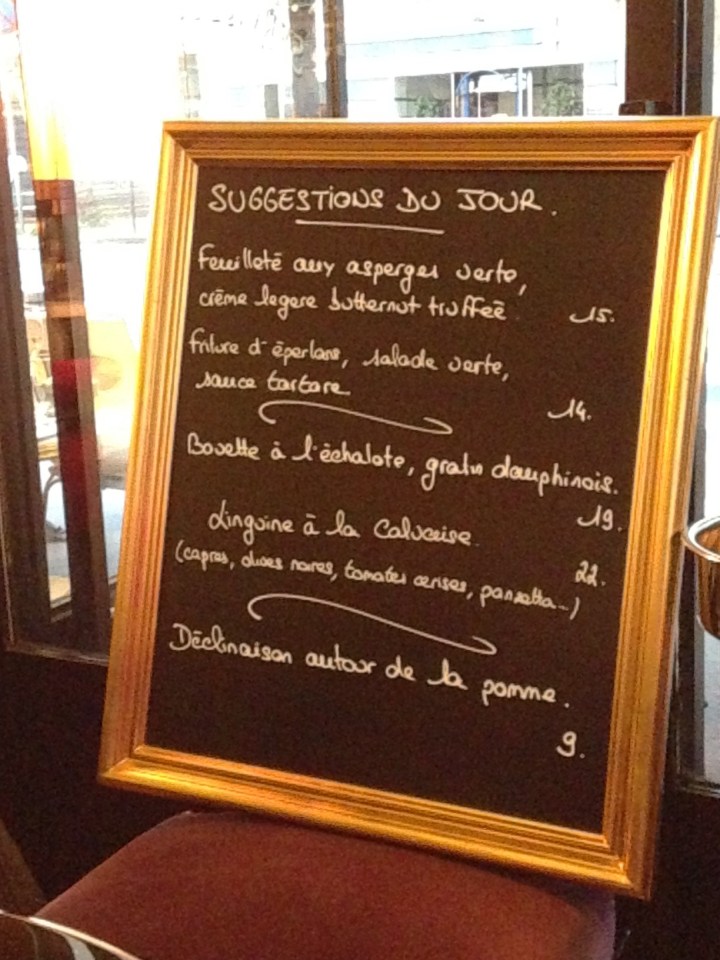 SUGGESTIONS DU JOUR.
Feuilleté aux asperges verte,
crème legere butternut truffeé 15.
friture d'éperlans, salade verte,
sauce tartare 14.
Bavette à l'échalote, gratin dauphinois.
19.
Linguine à la Calvaise 22.
(capres, olives noires, tomates cerises, pansetta...)
Déclinaison autour de la pomme.
9.